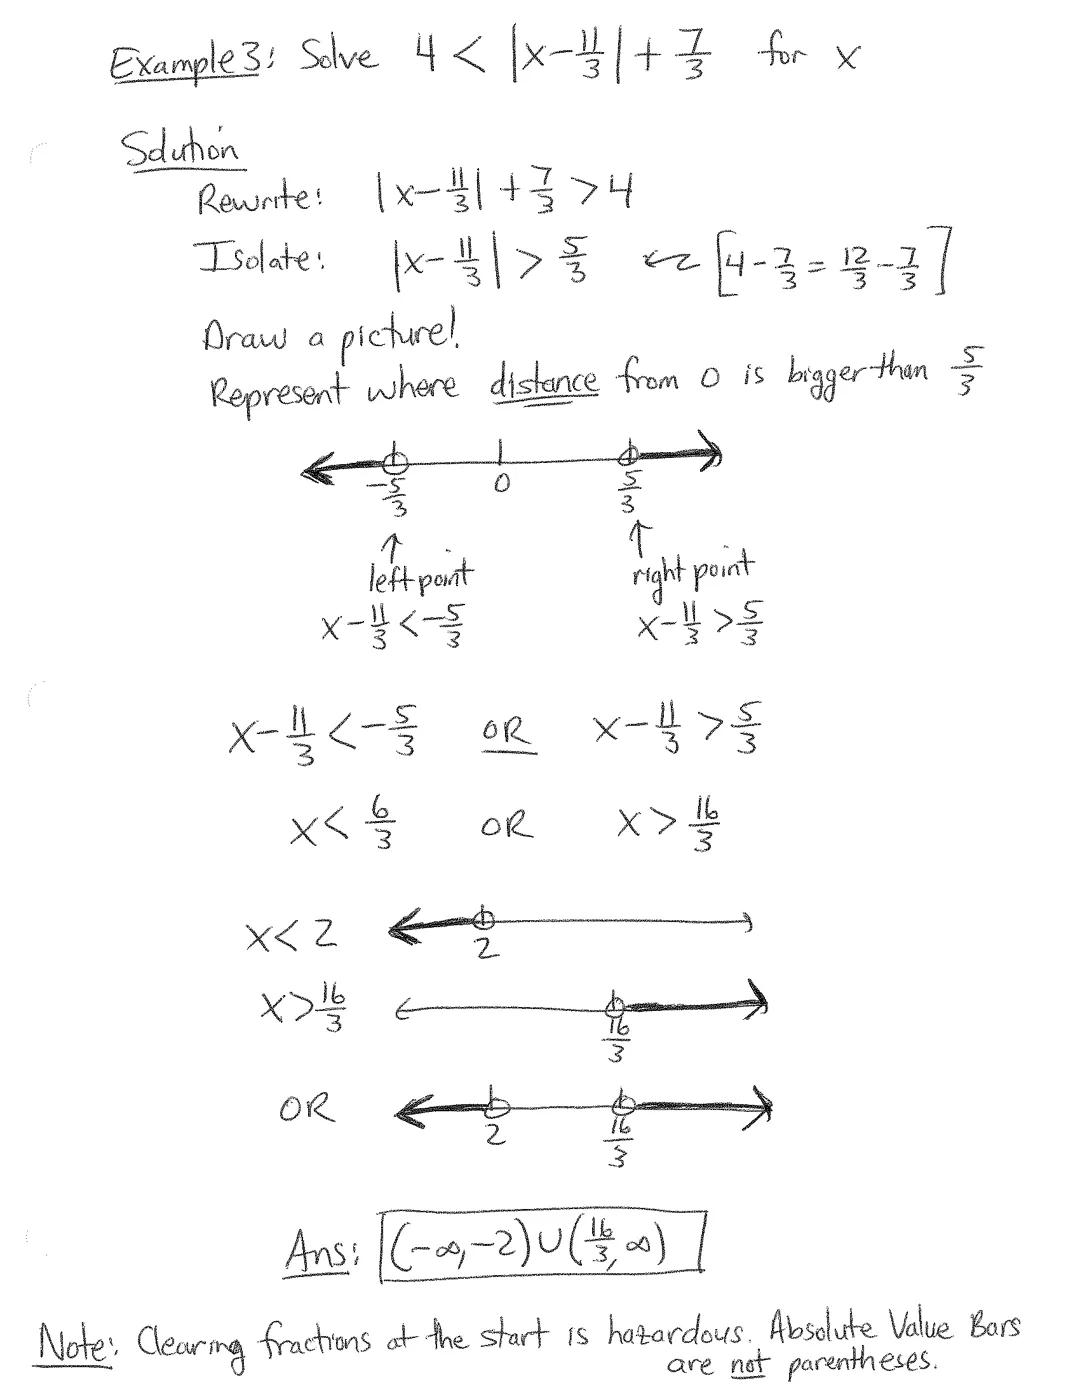 Example 3: Solve 4 < |x - 11/3| + 7/3 for x
Solution
Rewrite: |x - 11/3| + 7/3 > 4
Isolate: |x - 11/3| > 5/3 ← [4 - 7/3 = 12/3 - 7/3]
Draw a picture!
Represent where distance from 0 is bigger than 5/3
-5/3 0 5/3
↑ ↑
left point right point
x - 11/3 < -5/3 x - 11/3 > 5/3
x - 11/3 < -5/3 OR x - 11/3 > 5/3
x < 6/3 OR x > 16/3
x < 2
2
x > 16/3
16/3
OR
2 16/3
Ans: (-∞, -2) ∪ (16/3, ∞)
Note: Clearing fractions at the start is hazardous. Absolute Value Bars
are not parentheses.